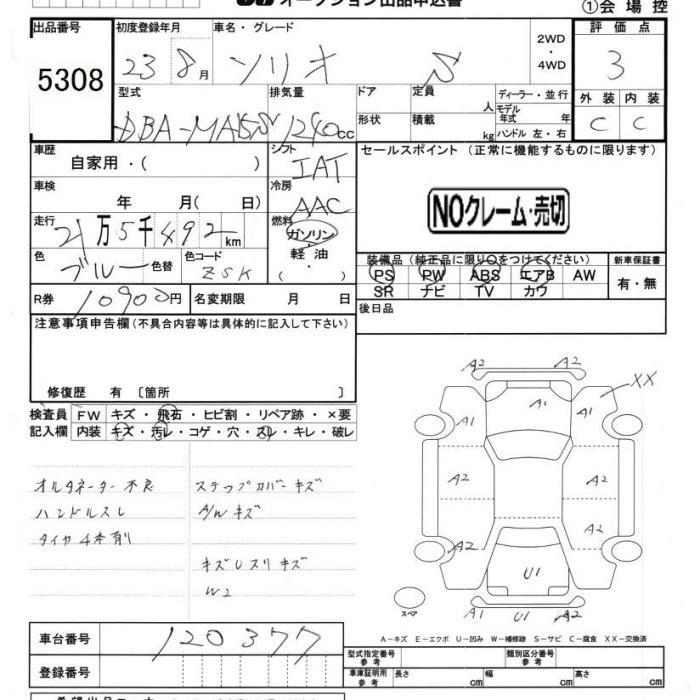 オークション出品申込書
①会場控
出品番号
5308
初度登録年月
23 8月
車名・グレード
ソリオ S
2WD
・
4WD
評価点
3
外装 内装
C C
型式
DBA-MA15S
排気量
1240cc
ドア
定員
人
ディーラー・並行
モデル年式 年
形状
積載
kg
ハンドル 左・右
車歴
自家用・( )
シフト
IAT
セールスポイント (正常に機能するものに限ります)
車検
年 月( 日)
冷房
AAC
NOクレーム・売切
走行
21万5千492km
燃料
ガソリン・
軽油・
( )
色
ブルー
色替
色コード
ZSK
装備品(純正品に限り○をつけてください)
PS PW ABS エアB AW
SR ナビ TV カワ
新車保証書
有・無
R券 10900円
名変期限 月 日
後日品
注意事項申告欄(不具合内容等は具体的に記入して下さい)
修復歴 有 〔箇所 〕
検査員
記入欄
FW キズ・飛石・ヒビ割・リペア跡・×要
内装 キズ・汚レ・コゲ・穴・スレ・キレ・破レ
オルタネーター不良
ハンドルスレ
タイヤ4本有り
ステップカバーキズ
A/Wキズ
キズUスリキズ
W2
A2 A2
XX
A1 A1
A1
A2 A2
A2
A2
U1
A1 U1 A2
スペア
A-キズ E-エクボ U-凹み W-補修跡 S-サビ C-腐食 XX-交換済
車台番号 120377
登録番号
型式指定番号
参考
類別区分番号
参考
車庫証明用
参考
長さ cm
幅 cm
高さ cm